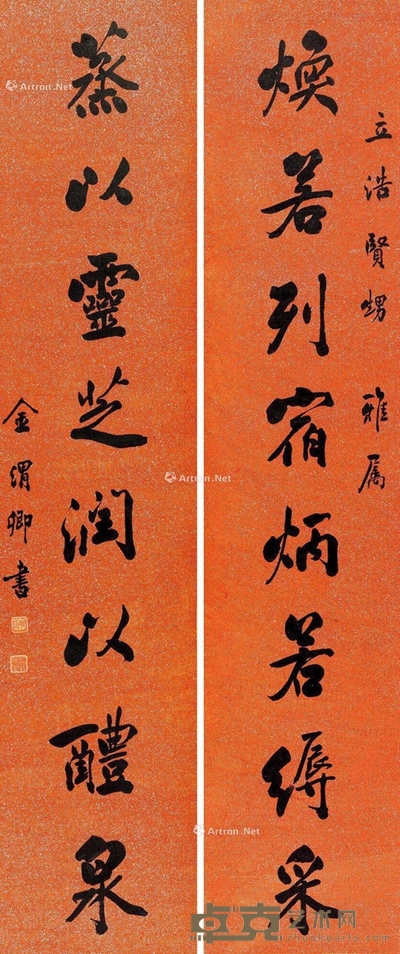 立浩賢甥 雅属
煥若列宿炳若縟采
蒸以靈芝润以醴泉
金渭卿書
Artron.Net
Artron.Net
Artron.Net
卓克艺术网